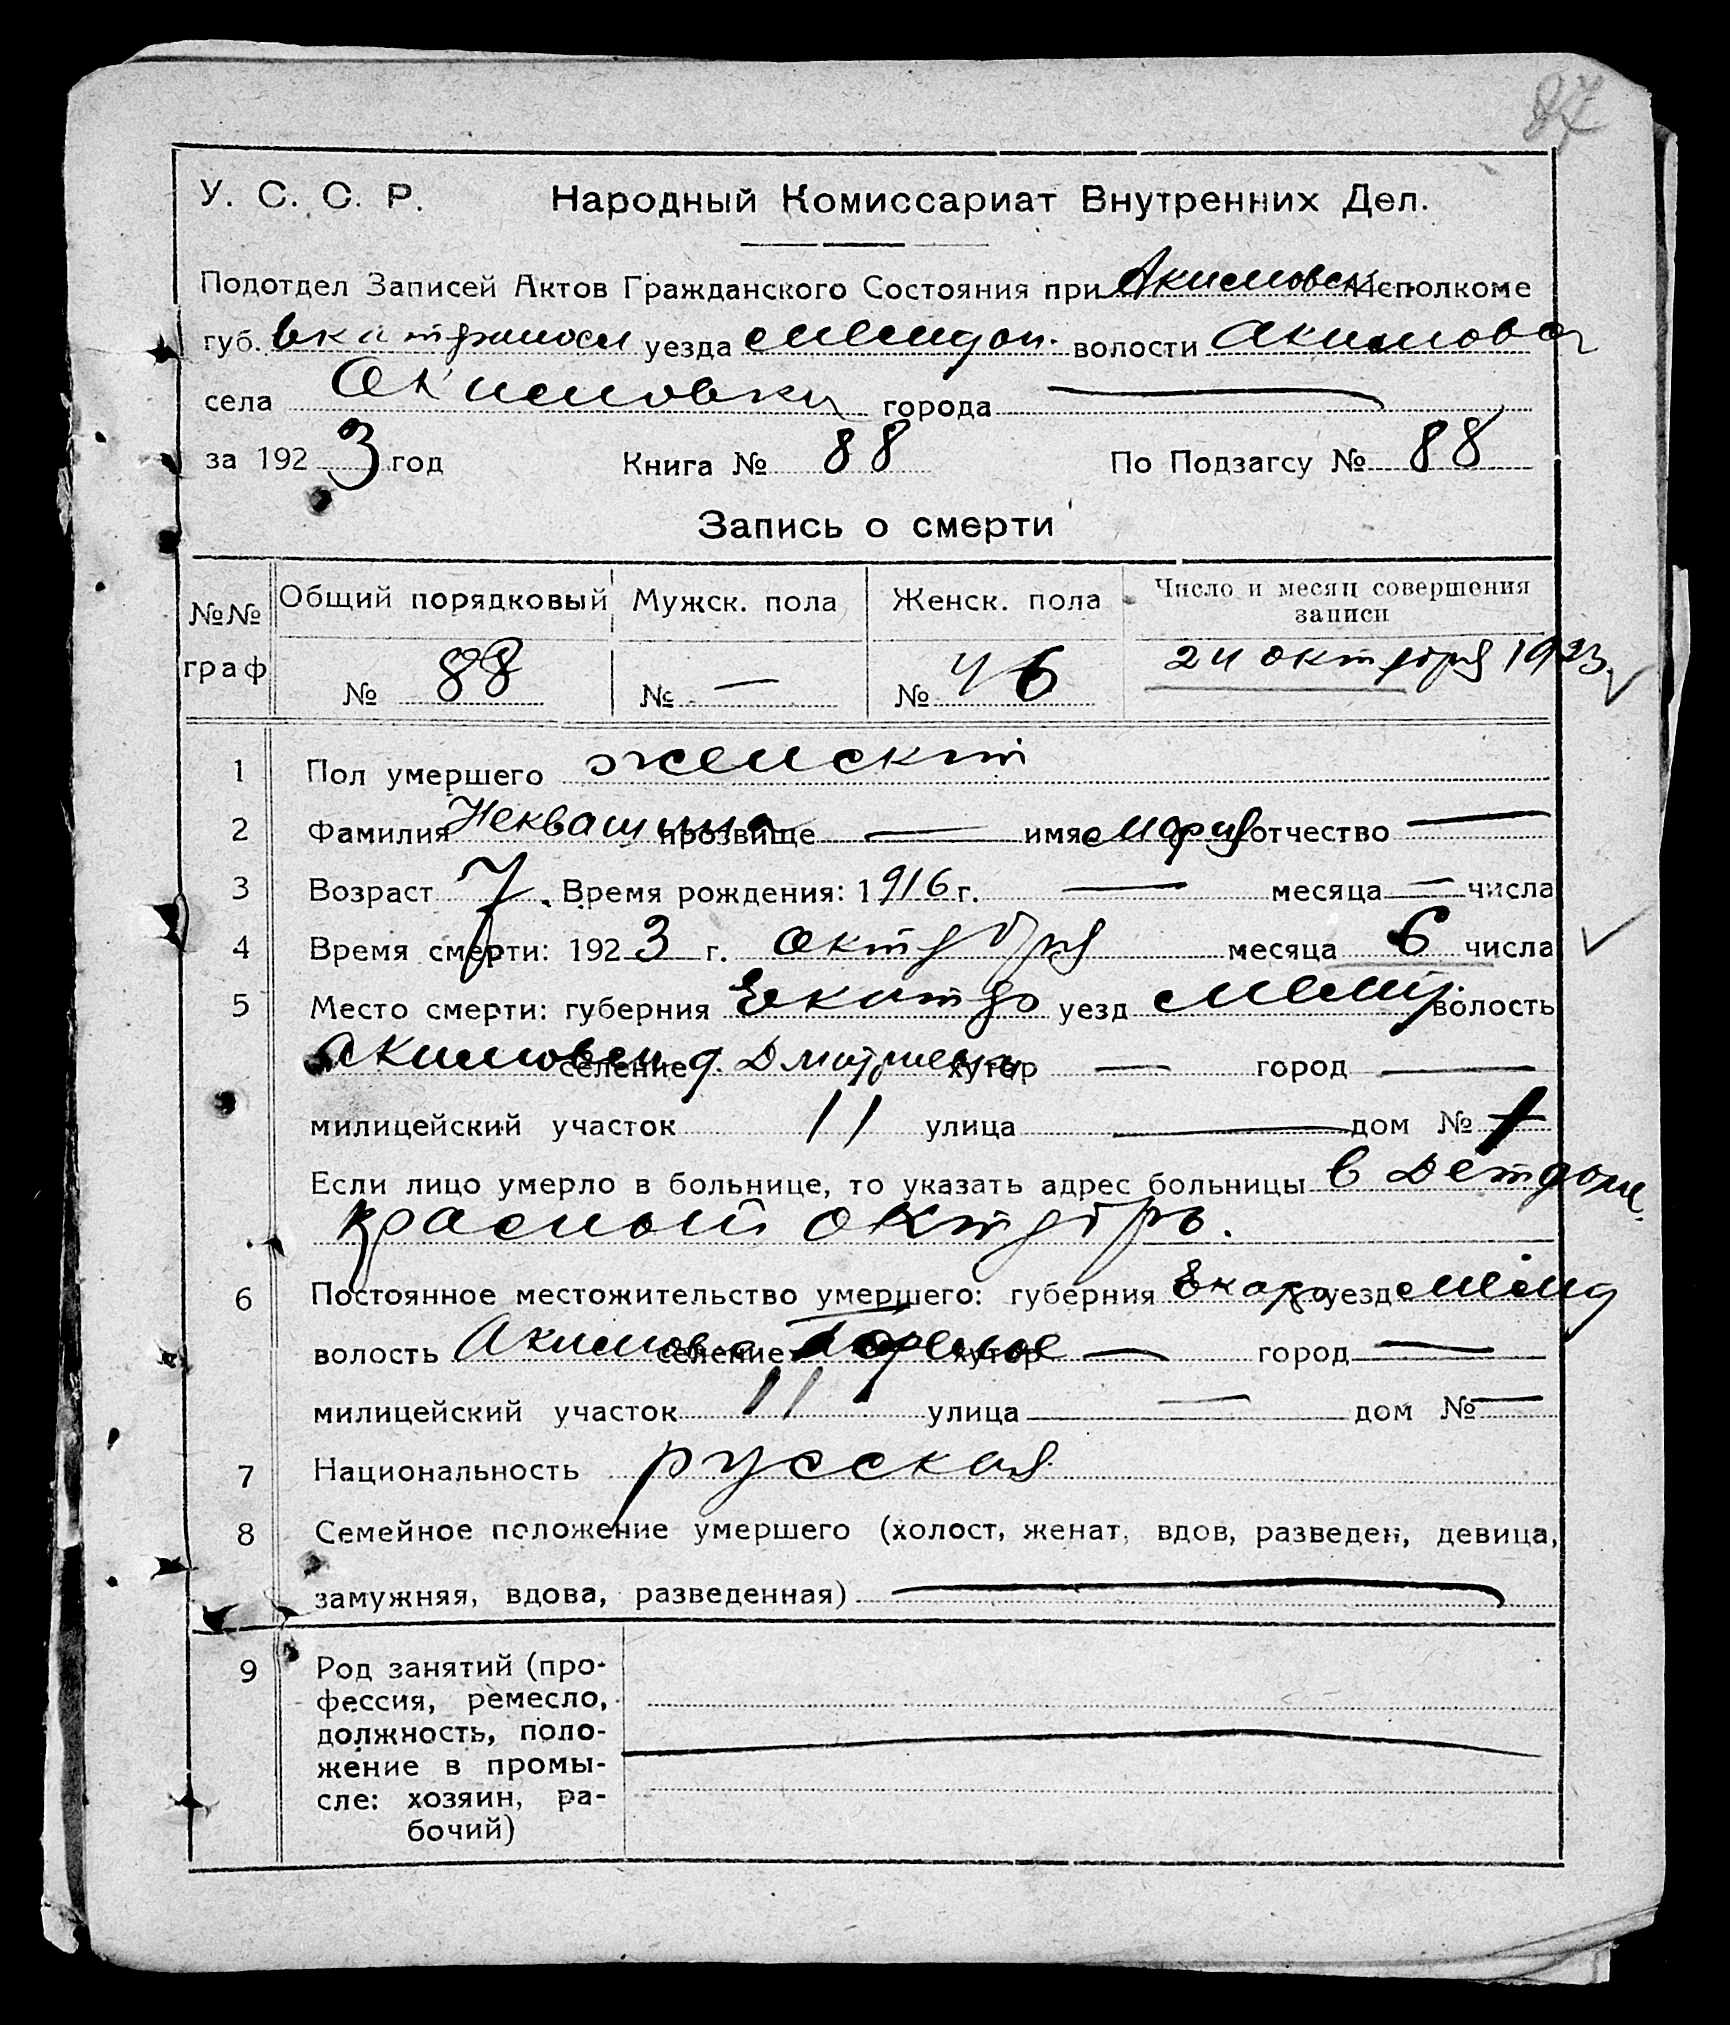 87
У. С. С. Р. Народный Комиссариат Внутренних Дел.
Подотдел Записей Актов Гражданского Состояния при Акимовск Исполкоме
губ. Екатериносл уезда Мелитоп. волости Акимовск
села Акимовки города —
за 1923 год Книга № 88 По Подзагсу № 88
Запись о смерти
№№ граф Общий порядковый Мужск. пола Женск. пола Число и месяц совершения записи
№ 88 № — № 46 24 октября 1923
1 Пол умершего женский
2 Фамилия Неквашина прозвище — имя Мария отчество —
3 Возраст 7. Время рождения: 1916 г. — месяца — числа
4 Время смерти: 1923 г. октября месяца 6 числа
5 Место смерти: губерния Екатер уезд Мелит волость
Акимовск селение хутор — город —
милицейский участок 11 улица — дом №
Если лицо умерло в больнице, то указать адрес больницы в Детдоме
Красный октябрь.
6 Постоянное местожительство умершего: губерния Екатер уезд Мелит
волость Акимовс селение хутор — город —
милицейский участок 11 улица — дом № —
7 Национальность русская
8 Семейное положение умершего (холост, женат, вдов, разведен, девица,
замужняя, вдова, разведенная) —
9 Род занятий (про-
фессия, ремесло,
должность, поло-
жение в промы-
сле: хозяин, ра-
бочий) —